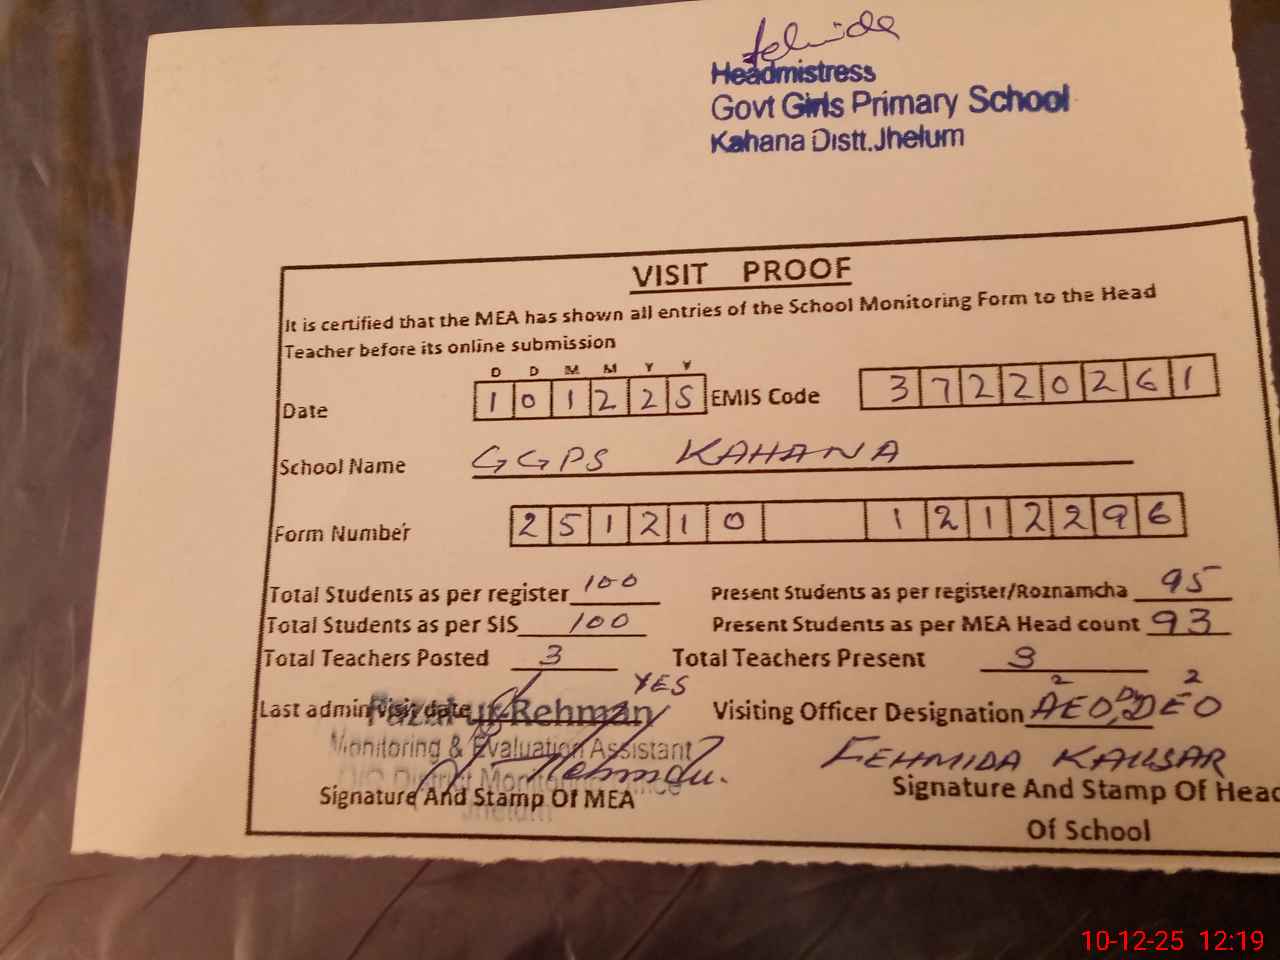 Headmistress
Govt Girls Primary School
Kahana Distt.Jhelum
VISIT PROOF
It is certified that the MEA has shown all entries of the School Monitoring Form to the Head
Teacher before its online submission
D D M M Y Y
Date 1 0 1 2 2 5 EMIS Code 3 7 2 2 0 2 6 1
School Name GGPS KAHANA
Form Number 2 5 1 2 1 0 1 2 1 2 2 9 6
Total Students as per register 100 Present Students as per register/Roznamcha 95
Total Students as per SIS 100 Present Students as per MEA Head count 93
Total Teachers Posted 3 Total Teachers Present 3
YES 2 2
Last admin visit date Visiting Officer Designation AEO, Dy DEO
Fazal ur Rehman
Monitoring & Evaluation Assistant
O/O District Monitoring Office
Jhelum
FEHMIDA KAUSAR
Signature And Stamp Of MEA Signature And Stamp Of Head
Of School
10-12-25 12:19